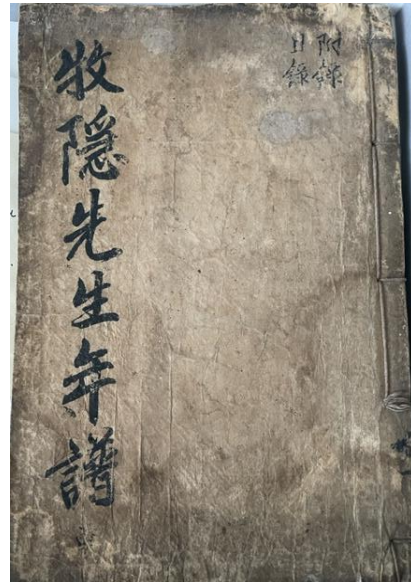 附錄
目錄
牧隱先生年譜